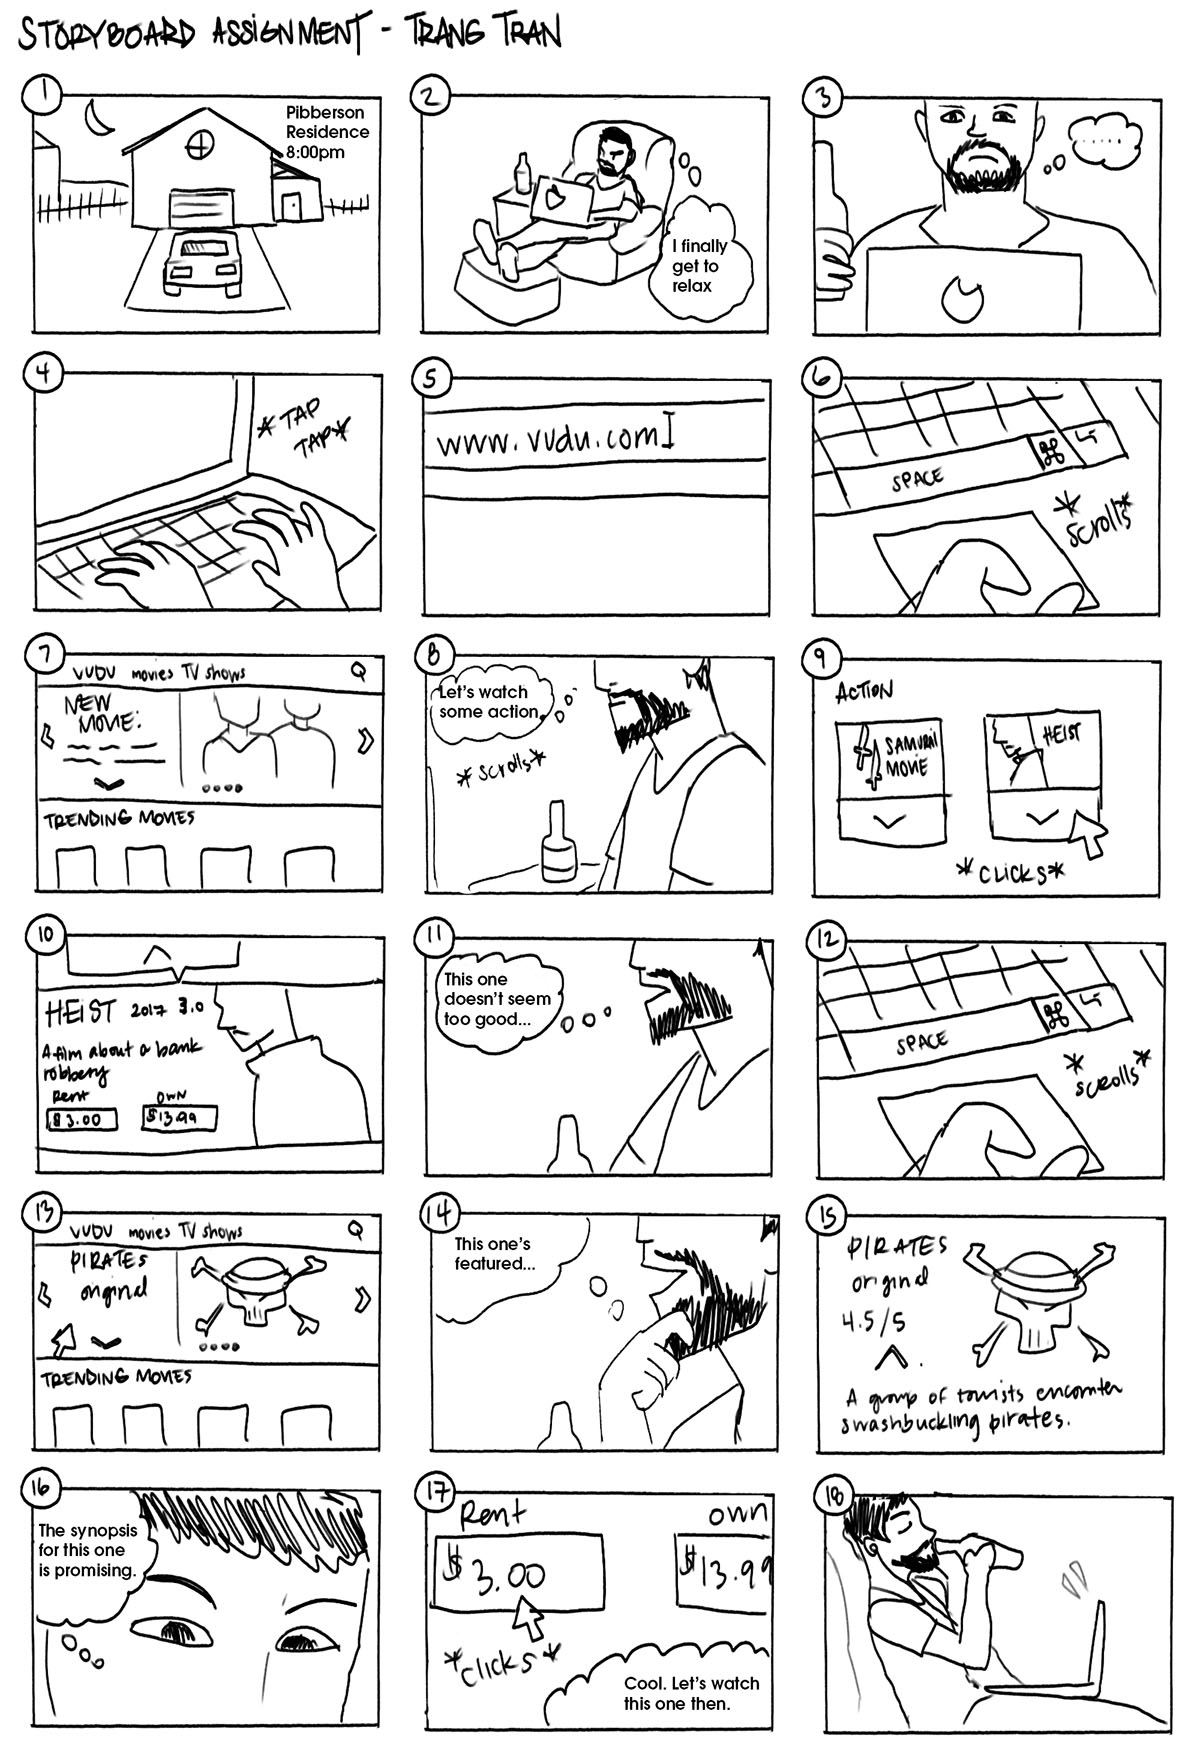 STORYBOARD ASSIGNMENT - TRANG TRAN
1
Pibberson
Residence
8:00pm
2
I finally
get to
relax
3
......
4
*TAP
TAP*
5
www.vudu.com
6
SPACE
⌘
*scrolls*
7
VUDU movies TV shows
NEW
MOVIE:
TRENDING MOVIES
8
Let's watch
some action.
*scrolls*
9
ACTION
SAMURAI
MOVIE
HEIST
*CLICKS*
10
HEIST 2017 3.0
A film about a bank
robbery
Rent OWN
$3.00 $13.99
11
This one
doesn't seem
too good...
12
SPACE
⌘
*scrolls*
13
VUDU movies TV shows
PIRATES
original
TRENDING MOVIES
14
This one's
featured...
15
PIRATES
original
4.5/5
A group of tourists encounter
swashbuckling pirates.
16
The synopsis
for this one
is promising.
17
Rent own
$3.00 $13.99
*clicks*
Cool. Let's watch
this one then.
18